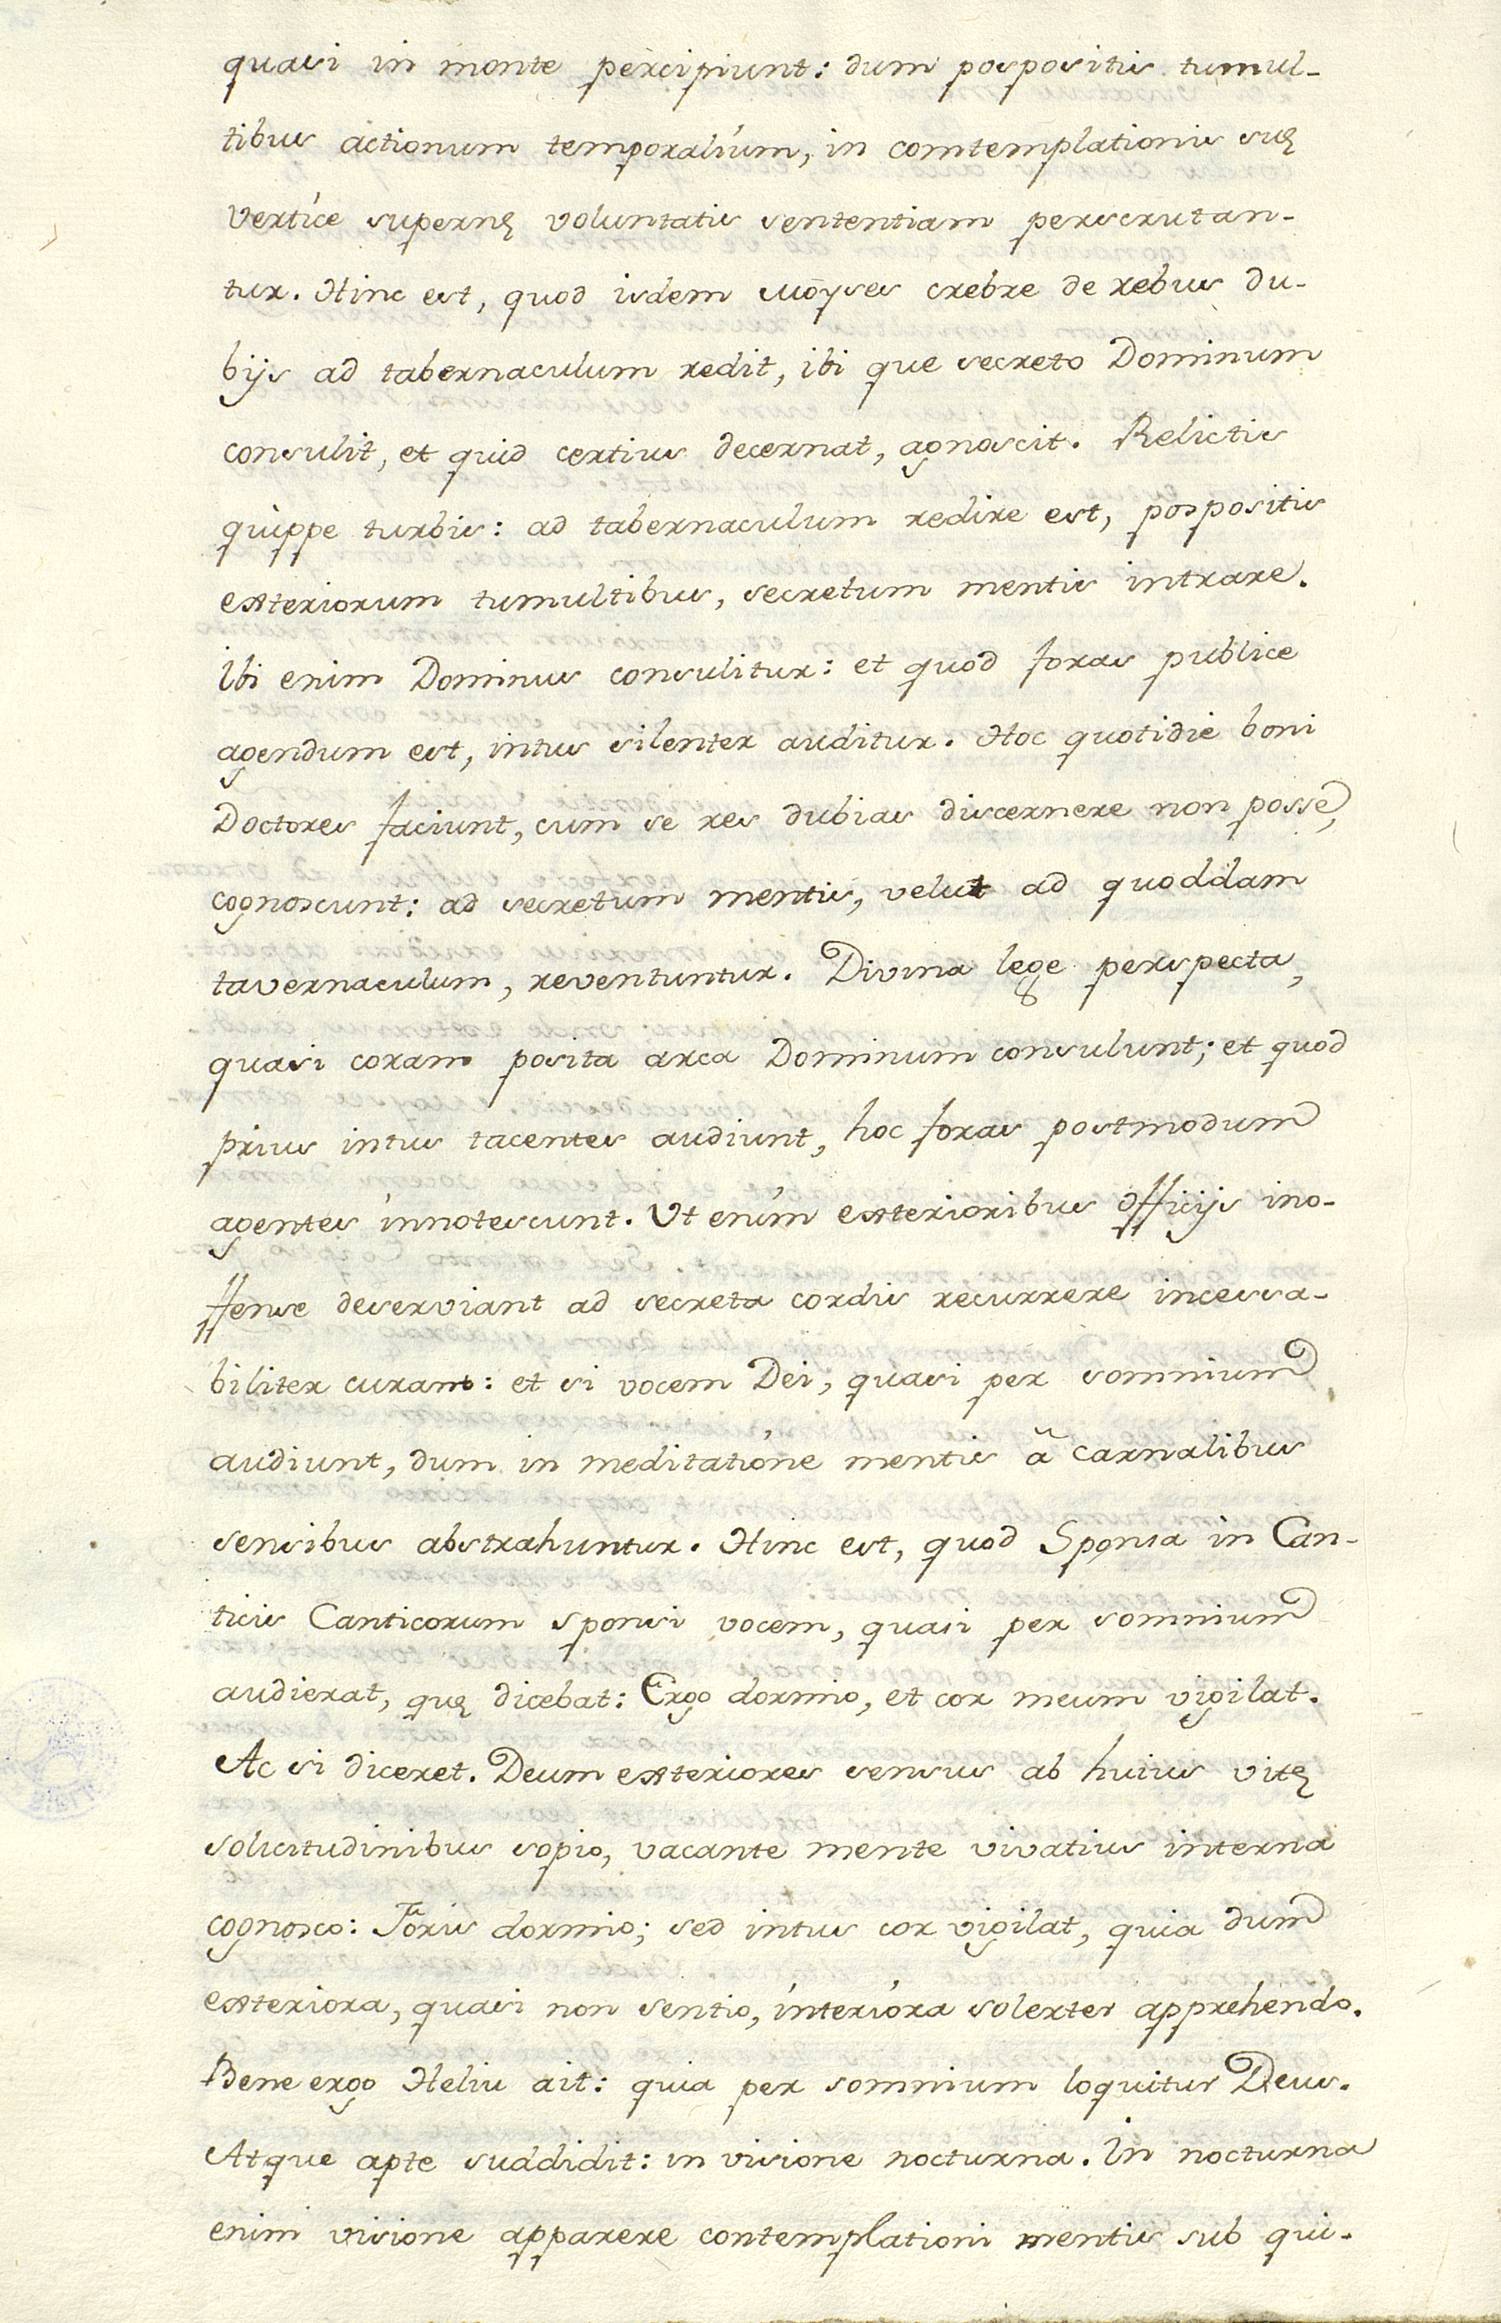 quasi in monte percipiunt: dum pospositis tumul-
tibus actionum temporalium, in comtemplationis suę
vertice supernę voluntatis sententiam perscrutan-
tur. Hinc est, quod isdem Moyses crebre de rebus du-
bijs ad tabernaculum redit, ibi que secreto Dominum
consulit, et quid certius decernat, agnoscit. Relictis
quippe turbis: ad tabernaculum redire est, pospositis
exteriorum tumultibus, secretum mentis intrare.
Ibi enim Dominus consulitur: et quod foras publice
agendum est, intus silenter auditur. Hoc quotidie boni
Doctores faciunt, cum se res dubias discernere non posse,
cognoscunt: ad secretum mentis, velut ad quoddam
tavernaculum, reventuntur. Divina lege perspecta,
quasi coram posita arca Dominum consulunt; et quod
prius intus tacentes audiunt, hoc foras postmodum
agentes innotescunt. Ut enim exterioribus officijs ino-
ffense deserviant ad secreta cordis recurrere incessa-
biliter curant: et si vocem Dei, quasi per somnium
audiunt, dum in meditatione mentis ã carnalibus
sensibus abstrahuntur. Hinc est, quod Sponsa in Can-
ticis Canticorum sponsi vocem, quasi per somnium
audierat, quę dicebat: Ergo dormio, et cor meum vigilat.
Ac si diceret. Deum exteriores sensus ab huius vitę
solicitudinibus sopio, vacante mente vivatius interna
cognosco: Foris dormio; sed intus cor vigilat, quia dum
exteriora, quasi non sentio, interiora solerter apprehendo.
Bene ergo Heliu ait: quia per somnium loquitur Deus.
Atque apte suddidit: in visione nocturna. In nocturna
enim visione apparere contemplationi mentis sub qui-